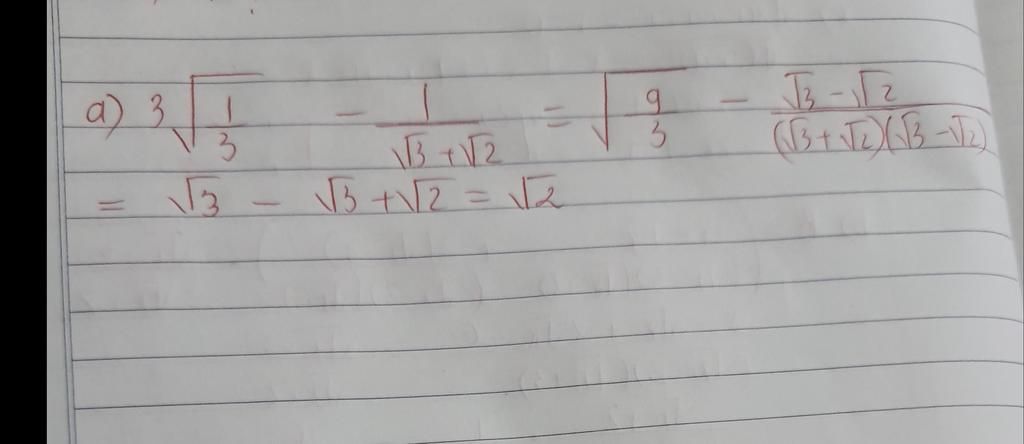 a) 3√(1/3) - 1/(√3 + √2) = √(9/3) - (√3 - √2)/((√3 + √2)(√3 - √2))
= √3 - √3 + √2 = √2